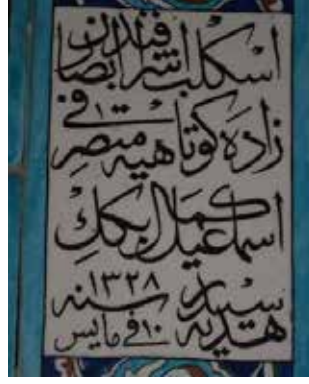 اسكلب اشرافندن
زاده كوتاهيه متصرفى
اسماعيل كمال بكك
هديه سيدر سنه ١٣٢٨
١٠ فى مايس